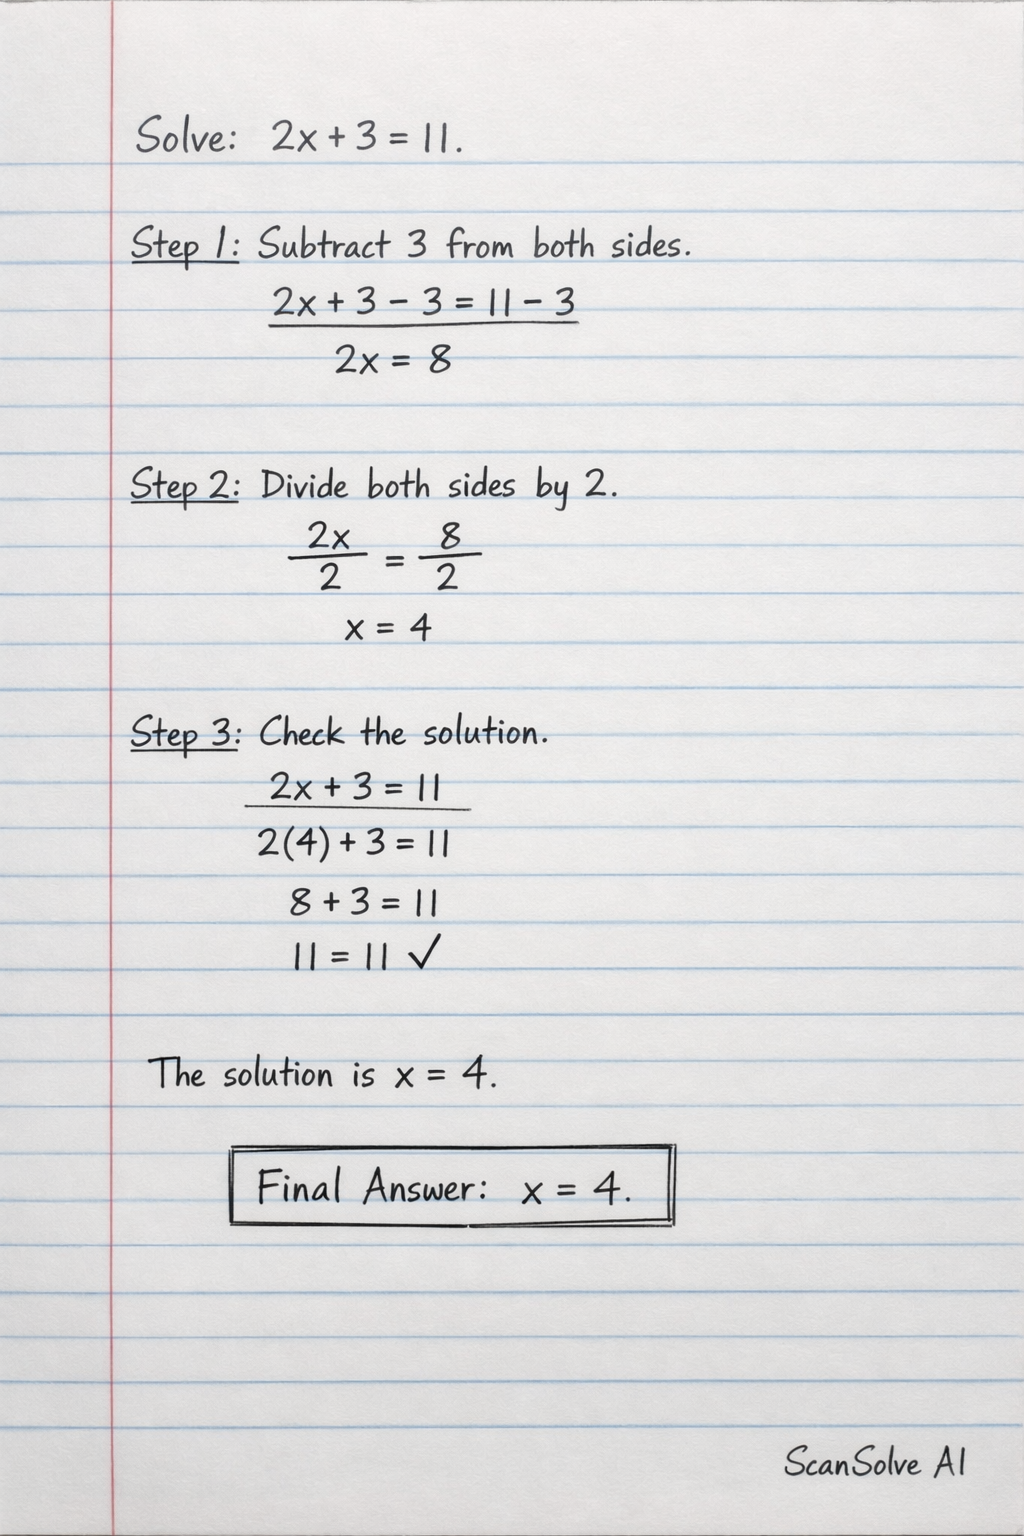 Solve: 2x + 3 = 11.
Step 1: Subtract 3 from both sides.
2x + 3 - 3 = 11 - 3
2x = 8
Step 2: Divide both sides by 2.
2x/2 = 8/2
x = 4
Step 3: Check the solution.
2x + 3 = 11
2(4) + 3 = 11
8 + 3 = 11
11 = 11 ✓
The solution is x = 4.
Final Answer: x = 4.
ScanSolve AI